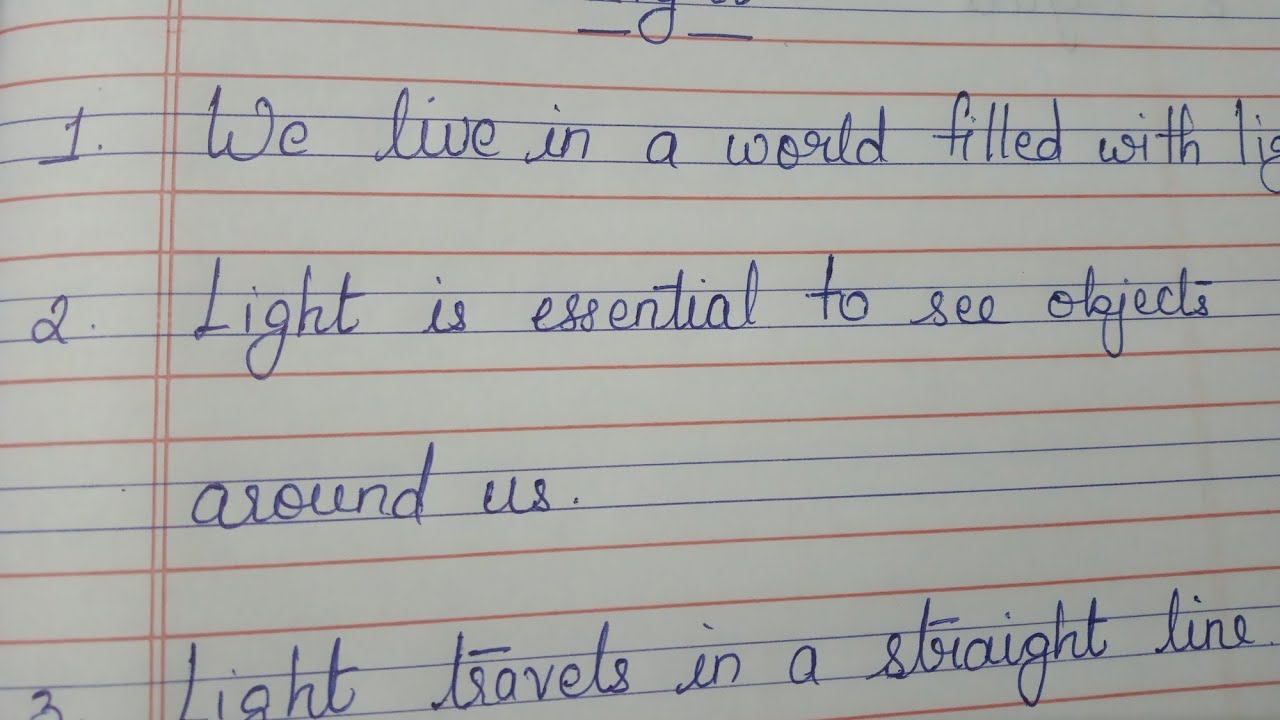 1. We live in a world filled with lig
2. Light is essential to see objects
around us.
3. Light travels in a straight line.